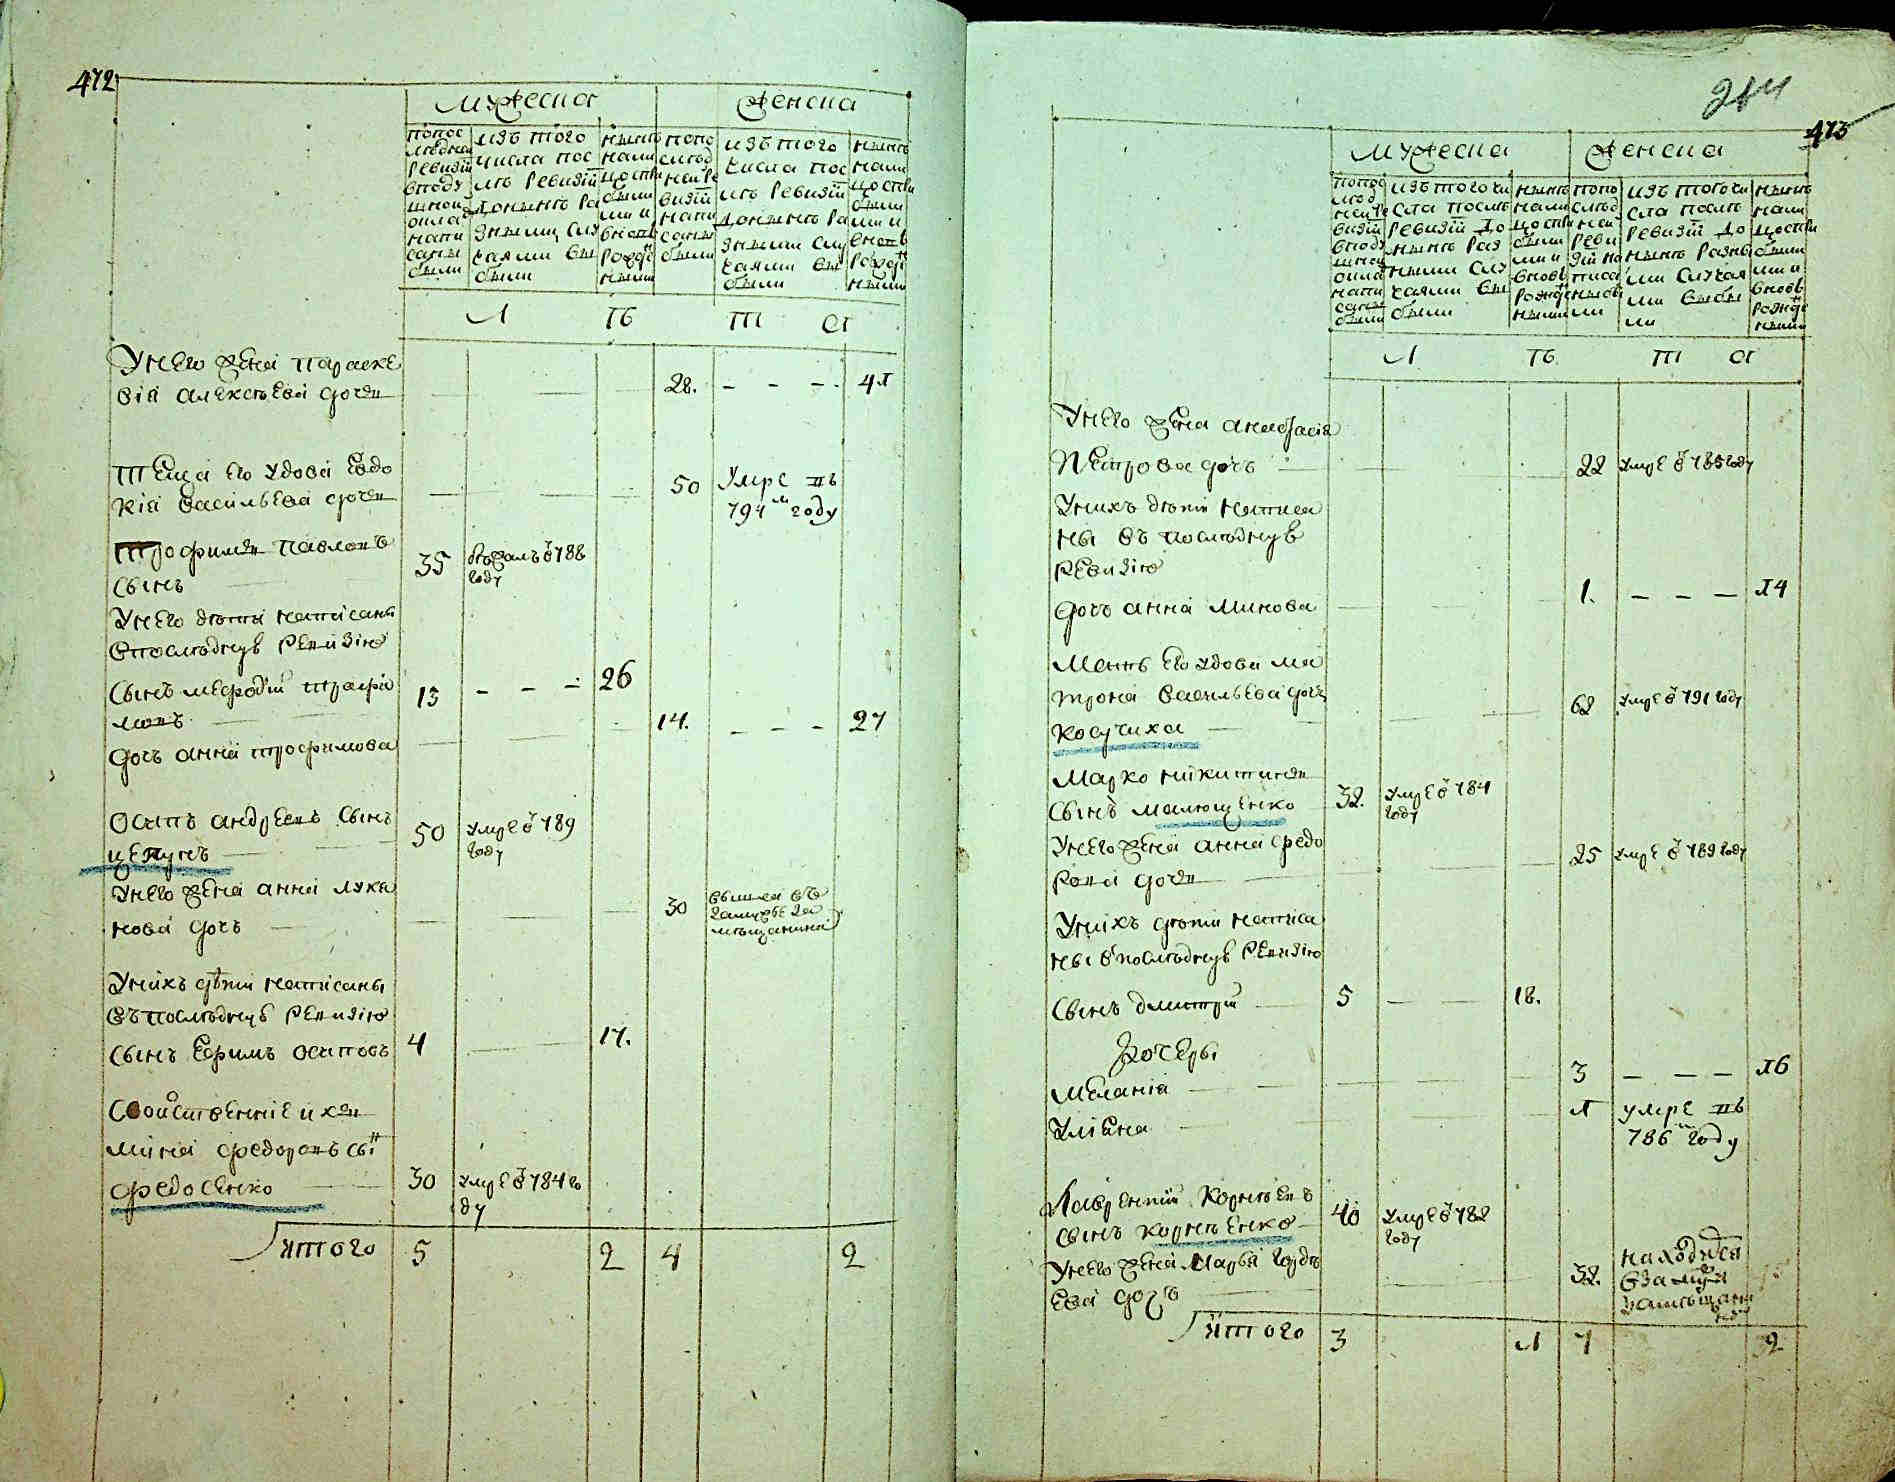 472
Мужеска
Женска
попос
ледней
ревизiи
вподу
шной
оклад
напи
саны
были
изъ того
числа пос
лѣ ревизiи
донынѣ ра
зными слу
чаями вы
были
нынѣ
нали
цо сты
были
ми и
вновь
рожде
нными
попо
слѣд
ней ре
визiи
напи
саны
были
изъ того
числа пос
лѣ ревизiи
донынѣ ра
зными слу
чаями вы
были
нынѣ
нали
цо сты
были
ми и
вновь
рожде
нными
Л Т С
У него жена параске
вiя алексѣева дочь 28. - - - 41
Теща его удова Евдо
кiя васильева дочь 50 Умре въ
794м году
Трофимъ павловъ
сынъ 35 бѣжалъ в 788
году
У него дѣти написаны
в последную ревизiю
сынъ мефодiй трофи
мовъ 13 - - - 26
дочь анна трофимова 14. - - - 27
Осипъ андреевъ сынъ
цепунъ 50 умре в 789
году
У него жена анна луки
нова дочь 30 вышла въ
замужье за
мѣщанина
У нихъ дѣти написаны
въ последную ревизiю
сынъ Ефимъ осиповъ 4 17.
Свойственнiе ихъ
мина федоровъ сын
федосенко 30 умре в 784 го
ду
Итого 5 2 4 2
473
Мужеска
Женска
попос
лѣд
ней ре
визiи
вподу
шной
оклад
напи
саны
были
изъ того чи
сла послѣ
ревизiи до
нынѣ раз
ными слу
чаями вы
были
нынѣ
нали
цо сты
были
ми и
вновь
рожде
нными
попо
слѣд
ней
реви
зiи на
писа
ны бы
ли
изъ того чи
сла послѣ
ревизiи до
нынѣ разны
ми случая
ми выбы
ли
нынѣ
нали
цо сты
были
ми и
вновь
рожде
нными
Л Т С
У него жена анастасiя
Петрова дочь 22 умре в 785 году
У нихъ дѣти написа
ны въ последную
ревизiю
дочь анна минова 1. - - - 14
Мать его удова ма
трона васильева дочь
косучиха 62 умре в 791 году
Марко никитинъ
сынъ малющенко 32. умре в 784
году
У него жена анна федо
рова дочь 25 умре в 789 году
У нихъ дѣти написа
ны в последную ревизiю
сынъ дмитрiй 5 18.
Дочери
Меланiя 3 - - - 16
Улiяна 1 умре въ
786м году
Лаврентiй Корнѣевъ
сынъ корнѣенко 40 умре в 782
году
У него жена Марья горде
ева дочь 32. находится
Итого 3 1 7 2